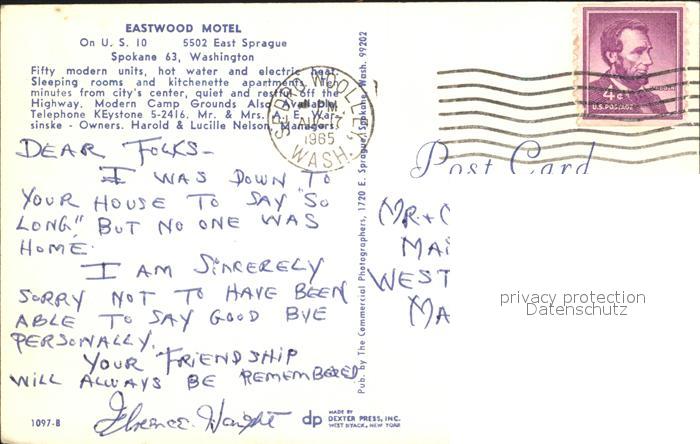 EASTWOOD MOTEL
On U. S. 10 5502 East Sprague
Spokane 63, Washington
Fifty modern units, hot water and electric heat.
Sleeping rooms and kitchenette apartments. Ten
minutes from city's center, quiet and restful off the
Highway. Modern Camp Grounds Also Available.
Telephone KEystone 5-2416. Mr. & Mrs. A. E. War-
sinske - Owners. Harold & Lucille Nelson, Managers.
DEAR FOLKS-
I WAS DOWN TO
YOUR HOUSE TO SAY "SO
LONG," BUT NO ONE WAS
HOME.
I AM SINCERELY
SORRY NOT TO HAVE BEEN
ABLE TO SAY GOOD BYE
PERSONALLY.
YOUR FRIENDSHIP
WILL ALWAYS BE REMEMBERED
Florence
1097-B
dp
MADE BY
DEXTER PRESS, INC.
WEST NYACK, NEW YORK
Pub. by The Commercial Photographers, 1720 E. Sprague, Spokane, Wash. 99202
SEDRO WOOLLEY
PM
AUG
1965
WASH.
4¢
U.S. POSTAGE
Post Card
MR.+
MAI
WEST
MA
privacy protection
Datenschutz